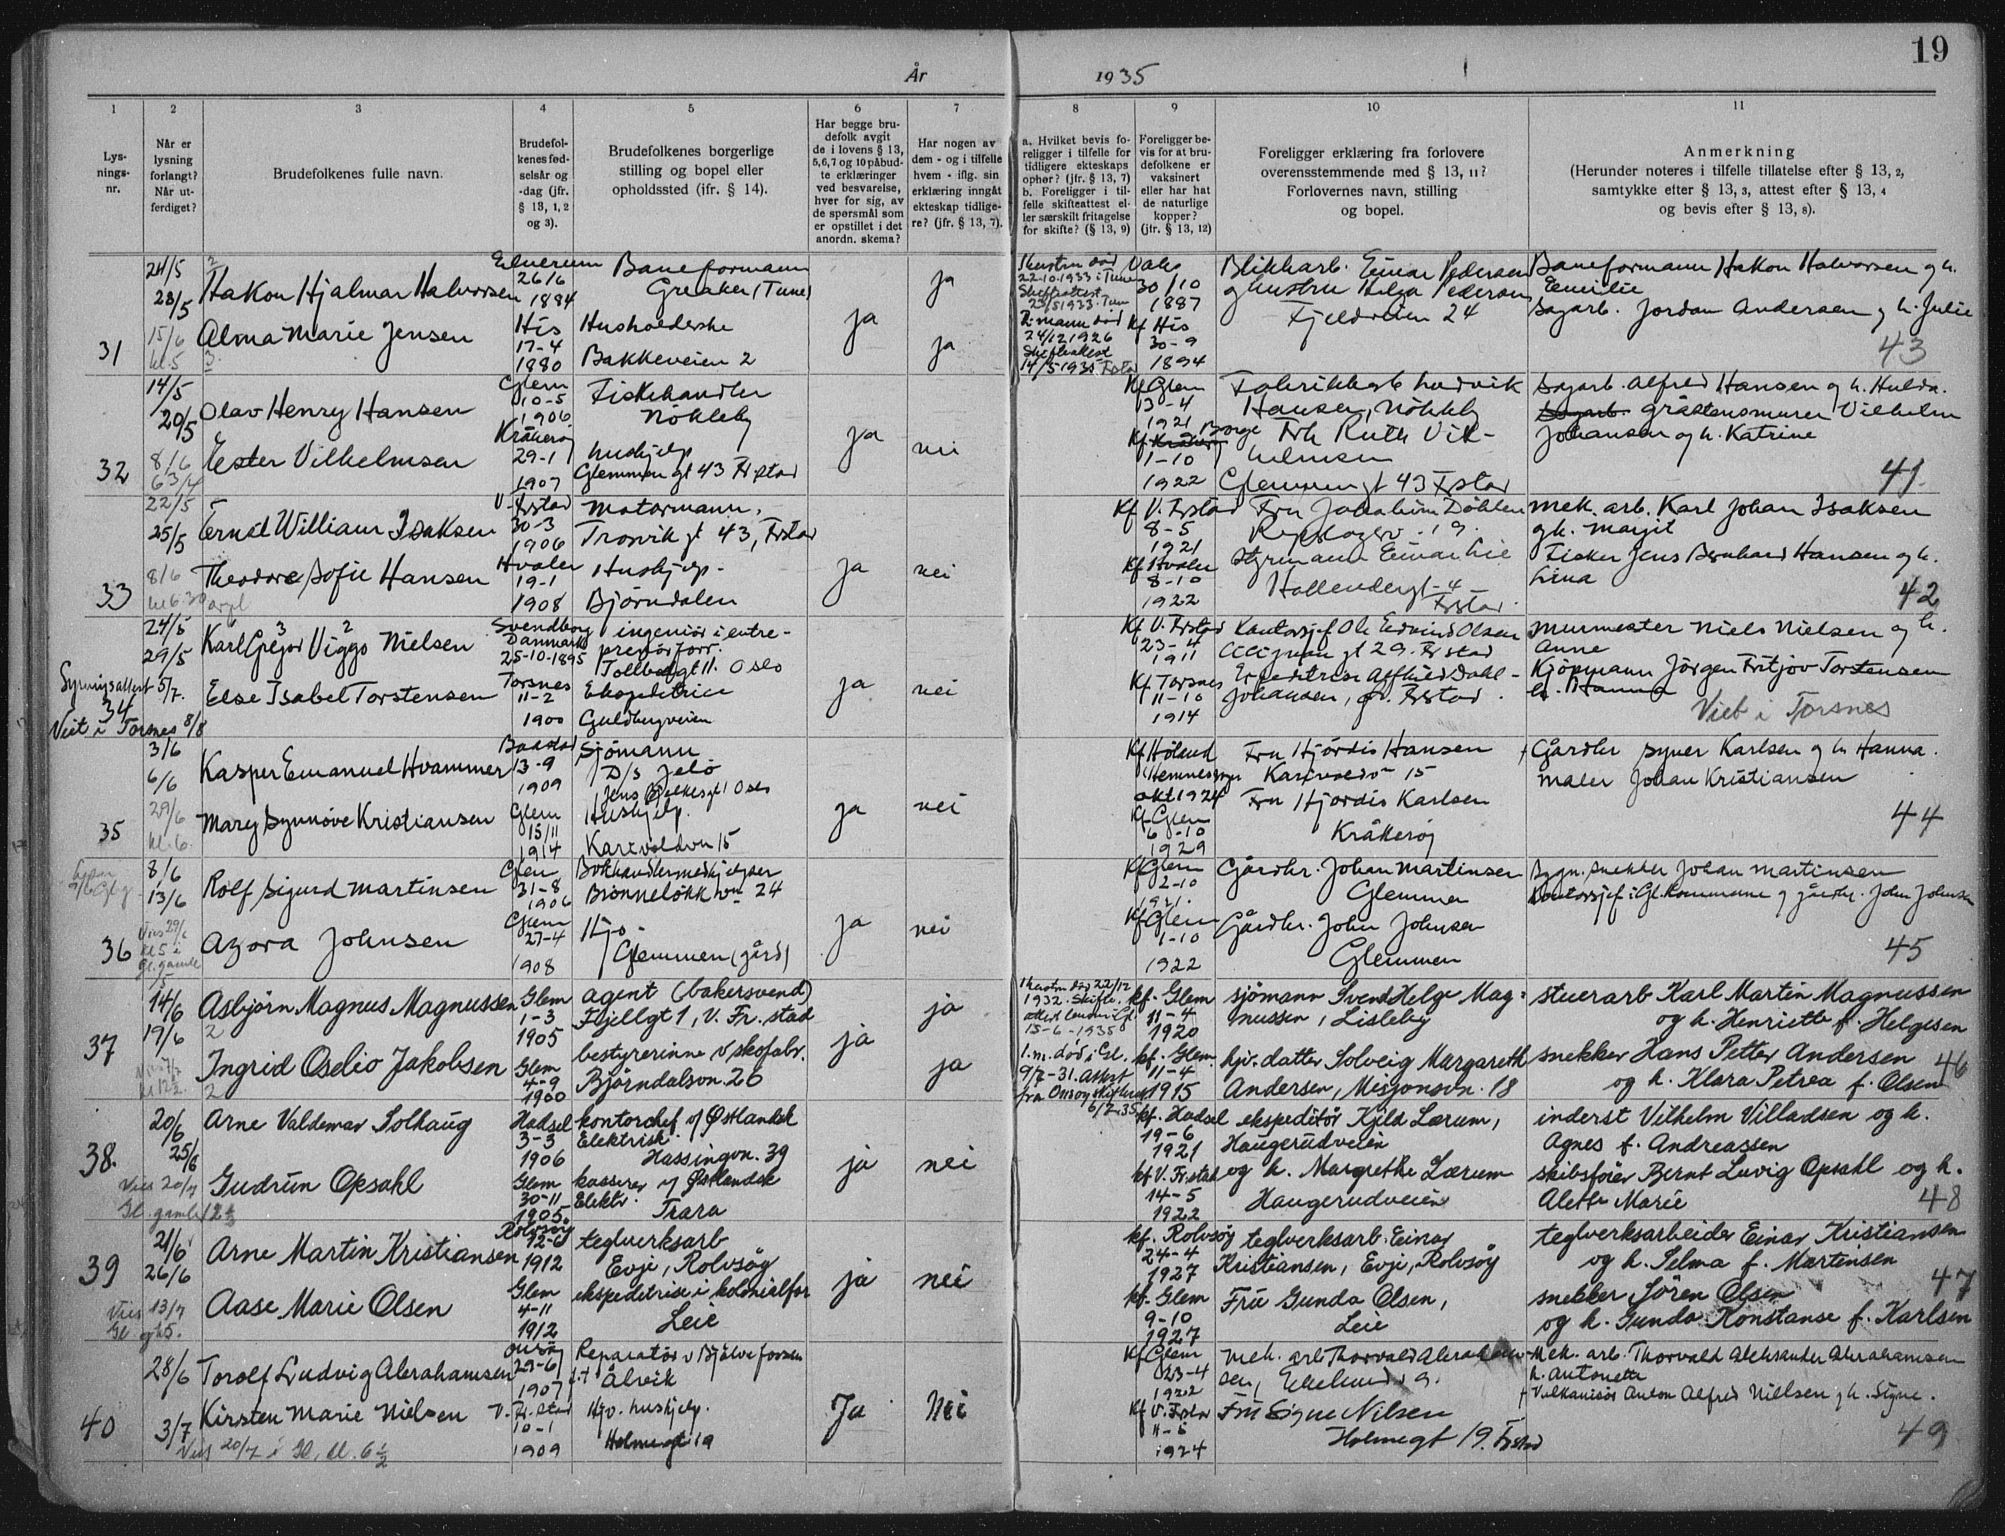 19
År 1935
1 2 3 4 5 6 7 8 9 10 11
Lys-
nings-
nr.
Når er
lysning
forlangt?
Når ut-
ferdiget?
Brudefolkenes fulle navn.
Brudefol-
kenes fød-
selsår og
-dag (jfr.
§ 13, 1, 2
og 3).
Brudefolkenes borgerlige
stilling og bopel eller
opholdssted (jfr. § 14).
Har begge bru-
defolk avgit
de i lovens § 13,
5, 6, 7 og 10 påbud-
te erklæringer
ved besvarelse,
hver for sig, av
de spørsmål som
er opstillet i det
anordn. skema?
Har nogen av
dem - og i tilfelle
hvem - iflg. sin
erklæring inngått
ekteskap tidlige-
re? (jfr. § 13, 7).
a. Hvilket bevis fo-
religger i tilfelle for
tidligere ekteskaps
ophør? (jfr. § 13, 7)
b. Foreligger i til-
felle skifteattest el-
ler særskilt fritagelse
for skifte? (§ 13, 9)
Foreligger be-
vis for at bru-
defolkene er
vaksinert
eller har hat
de naturlige
kopper?
(jfr. § 13, 12)
Foreligger erklæring fra forlovere
overensstemmende med § 13, 11?
Forlovernes navn, stilling
og bopel.
Anmerkning
(Herunder noteres i tilfelle tillatelse efter § 13, 2,
samtykke efter § 13, 3, attest efter § 13, 4
og bevis efter § 13, 8).
31
24/5
28/5
15/6
kl. 5
Hakon Hjalmar Halvorsen
Alma Marie Jensen
Elverum
26/6
1884
His
17-4
1880
Baneformann
Greaker (Tune)
Husholderske
Bakkeveien 2
ja
ja
ja
1 hustru død
22-10-1933 i Tune
Skifteattest
1 mann død
24/12 1926
Skifteattest
14/5 1935 Frstad
30/10
1887
Kf His
30-9
1894
Blikkarb. Einar Pedersen
og hustru Helga Pedersen
24
Baneformann Hakon Halvorsen og h.
Emilie
Sagarb. Jordan Andersen og h. Julie
43
32
14/5
20/5
8/6
6 3/4
Olav Henry Hansen
Ester Vilhelmsen
Glem
10-5
1906
Kråkerøy
29-1
1907
Fiskehandler
Nökleby
hushjelp
Glemmen gt 43 Frstad
ja
nei
Kf Glem
13-4
1921
Kf Borge
1-10
1922
Fabrikkarb Ludvik
Hansen, Nökleby
Frk Ruth Vil-
helmsen
Glemmengt 43 Frstad
Sagarb. Alfred Hansen og h. Hulda.
Sagarb. gråstensmurer Vilhelm
Johansen og h. Katrine
41.
33
22/5
25/5
8/6
kl 6.30
Ernst William Isaksen
Theodora Sofie Hansen
V. Frstad
30-3
1906
Hvaler
19-1
1908
Motormann,
Trosvik gt 43, Frstad
Hushjelp -
Björndalen
ja
nei
Kf V. Frstad
8-5
1921
Kf Hvaler
8-10
1922
Fru
19.
Styrmann Einar Lie
Hollendergt 4
Frstad.
Mek. arb. Karl Johan Isaksen
og h. Margit
Fisker Jens Bernhard Hansen og h.
Lina
42
34
24/5
29/5
5/7.
Viet i Torsnes 8/8
Karl Gregor Viggo Nielsen
Else Isabel Torstensen
Svendborg
Danmark
25-10-1895
Torsnes
11-2
1900
ingeniör i entre-
prenörforr.
Tollbugt 11. Oslo
Ekspeditrice
Guldbergveien
ja
nei
Kf V. Frstad
23-4
1911
Kf Torsnes
11-10
1914
Kontorsjef Ole Edvind Olsen
gt 29. Frstad
Johansen, Gr. Frstad.
Murmester Niels Nielsen og h.
Anne
Kjöpmann Jörgen Fritjov Torstensen
h. Hanna
Viet i Torsnes
35
3/6
6/6
29/6
kl. 6.
Kasper Emanuel Hvammer
Mary Synnöve Kristiansen
Baastad
13-9
1909
Glem
15/11
1914
Sjömann
D/s Jelö
Jens Bjelkesgt 1 Oslo
Hushjelp.
Karivoldvn 15
ja
nei
Kf Höland
okt 1924
Kf Glem
6-10
1929
Fru Hjördis Hansen
15
Fru Hjördis Karlsen
Kråkeröy
Gårdbr Syver Karlsen og h. Hanna.
Maler Johan Kristiansen
44
36
8/6
13/6
Vies 29/6
kl 5 i
Gl. gamle
Rolf Sigurd Martinsen
Azora Johnsen
Glem
31-8
1906
Glem
27-4
1908
Bokhandlermedhjelper
Brönnelökkvn 24
Hjv.
Glemmen (gård)
ja
nei
Kf Glem
2-10
1921.
Kf Glem
1-10
1922
Gårdbr. Johan Martinsen
Glemmen
Gårdbr. John Johnsen
Glemmen
Bygn. snekker Johan Martinsen
Kontorsjef i Gl. kommune og gårdbr. John Johnsen
45
37
14/6
19/6
Asbjörn Magnus Magnussen
2
Ingrid Oselio Jakobsen
2
Glem
1-3
1905
Glem
4-9
1900
agent (bakersvend)
Fjellgt 1, V. Fr.stad
bestyrerinne v skofabr.
Björndalsvn. 26
ja
ja
ja
1 hustru död 22/12
1932. Skifte-
15-6-1935
1. m. död i Gl.
9/7-31. Attest
fra Onsöy skifterett
6/7. 35
kf. Glem
11-4
1920
kf. Glem
11-4
1915
sjömann Svend Helge Mag-
nussen, Lisleby
hjv. datter Solveig Margareth
Andersen, Misjonsvn. 18
stuerarb Karl Martin Magnussen
og h. Henriette f. Helgesen
snekker Hans Petter Andersen
og h. Klara Petrea f. Olsen
46
38.
20/6
25/6
Vies 20/7
Gl. gamle 12 1/2
Arne Valdemar Solhaug
Gudrun Opsahl
Hadsel
3-3
1906
Glem
30-11
1905
kontorchef v/ Östlandsk
Elektrisk.
Hassingvn. 39
kasserer v/ Östlandsk
Elektr.
Trara
ja
nei
kf. Hadsel
19-6
1921
kf V. Fr.stad
14-5
1922
ekspeditör Kjild Lærum,
Haugerudveien
og h. Margrethe Lærum
Haugerudveien
inderst Vilhelm Villadsen og h.
Agnes f. Andreassen
skibsförer Bernt Luvig Opsahl og h.
Alette Marie
48
39
21/6
26/6
Vies 13/7
Gl. gl. 5.
Arne Martin Kristiansen
Aase Marie Olsen
Rolvsøy
12-6
1912
Glem
4-11
1912
teglverksarb
Evje, Rolvsöy
ekspeditrise i kolonialfor
Leie
ja
nei
kf. Rolvsöy
24-4
1927
kf. Glem
9-10
1927
teglverksarb. Einar
Kristiansen, Evje, Rolvsöy
Fru Gunda Olsen,
Leie
teglverksarbeider Einar Kristiansen
og h. Selma f. Martinsen
snekker Sören Olsen
og h. Gunda Konstanse f. Karlsen
47
40
28/6
3/7
Vies 20/7 i Gl. kl. 6 1/2
Torolf Ludvig Abrahamsen
Kirsten Marie Nielsen
Onsöy
29-6
1907
V. Fr.stad
10-1
1909
Reparatör v Bjölvefossen
Ålvik
Hjv. hushjelp.
Holmegt 19
Ja
Nei
Kf Glem
23-4
1922
Kf V. Frstad
11-5
1924
Mek. arb Thorvald Abraham-
sen,
Fru Signe Nilsen
Holmegt 19. Frstad
Mek. arb. Thorvald Aleksander Abrahamsen
h. Antonette
Vulkanisör Anton Alfred Nielsen og h. Signe.
49